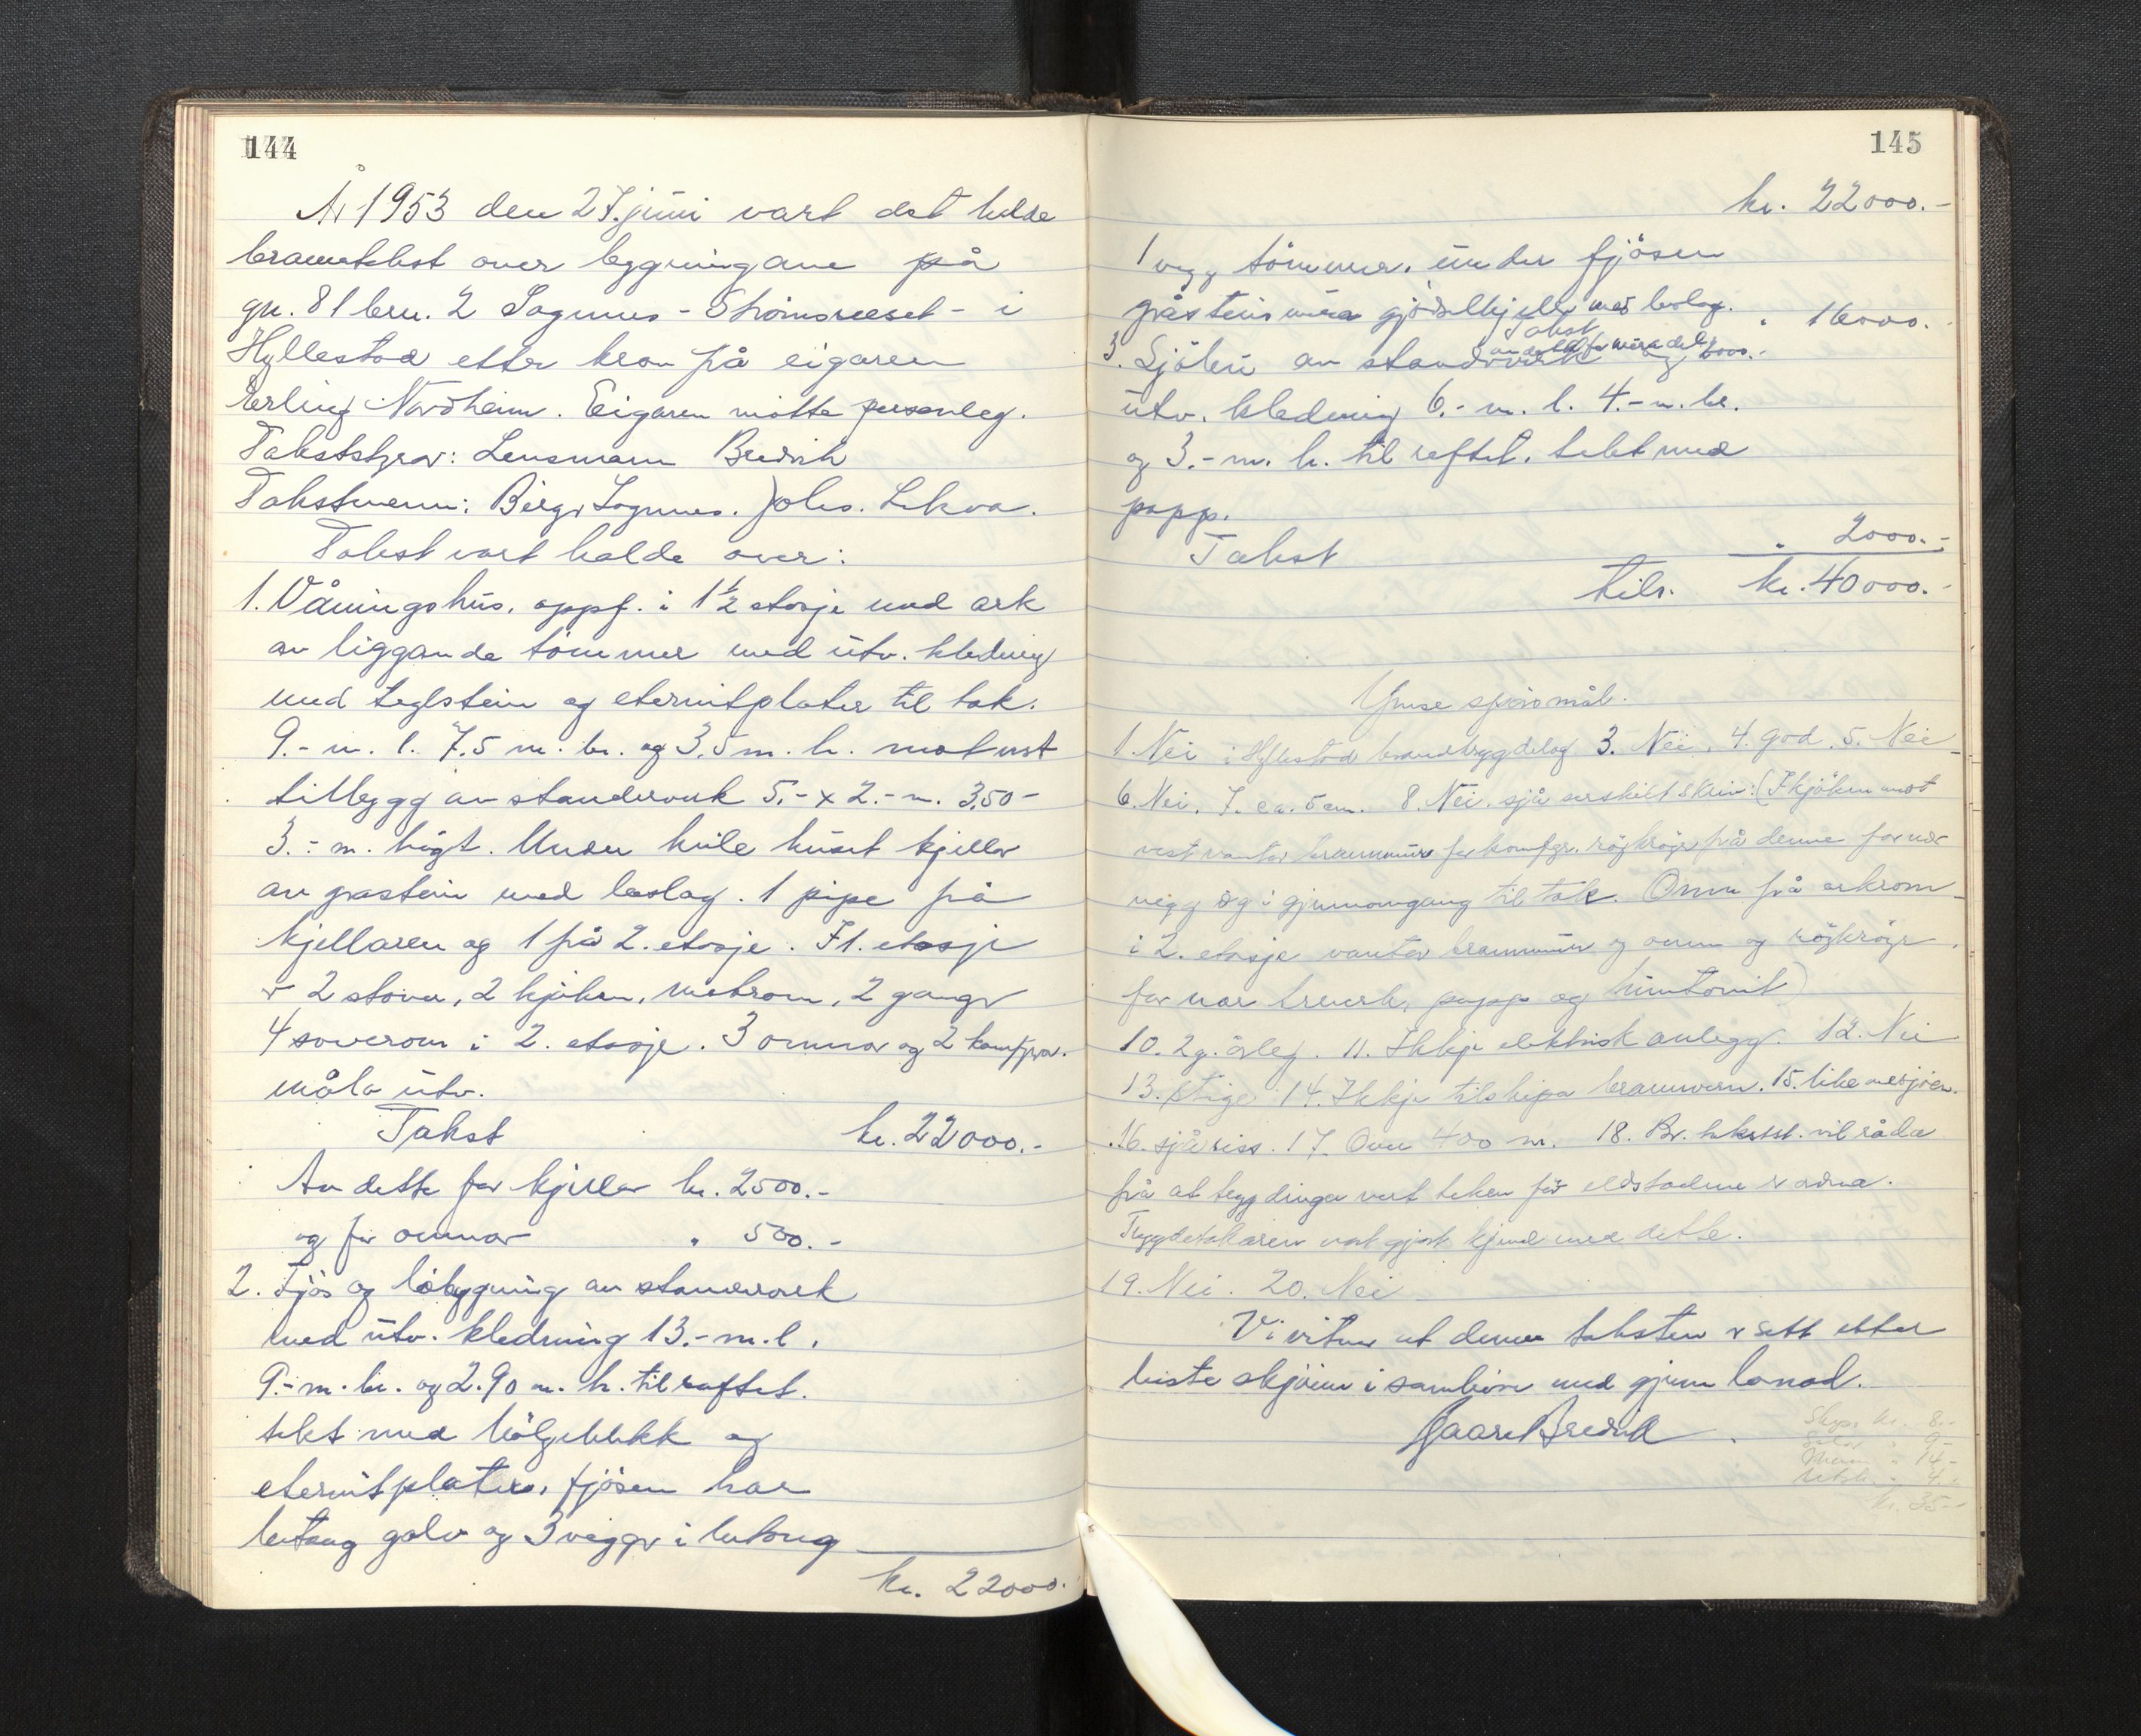 144
År 1953 den 27. juni vart det helde
branntakst over bygningane på
gn. 81 bru. 2 Sognnes - Strömsneset - i
Hyllestad etter krav på eigaren
Erling Nordheim. Eigaren møtte personleg.
Takststyrar: Lensmann Bredvik
Takstmenn: Birger Sognnes. Johs. Lekva.
Takst vart halde over:
1. Våningshus, oppf. i 1½ etasje med ark
av liggande tømmer med utv. kledning
med teglstein og eternitplater til tak.
9.- m. l. 7,5 m. br. og 3,5 m. h. mot vest
tillegg av standerverk 5.- x 2.- m. 3,50 -
3.- m. høgt. Under heile huset kjellar
av gråstein med beslag. 1 pipe frå
kjellaren og 1 frå 2. etasje. I 1. etasje
er 2 stover, 2 kjøken, matrom, 2 gangr
4 soverom i 2. etasje. 3 omnar og 2 komfyrar.
måla utv.
Takst kr. 22000.-
Av dette for kjellar kr. 2500.-
og for omnar " 500.-
2. Fjös og löbygning av standerverk
med utv. kledning 13.- m. l.
9.- m. br. og 2.90 m. h. til raftet.
tekt med bölgeblekk og
eternitplater, fjösen har
betong golv og 3 veggr i betong
kr. 22000.
145
kr. 22000.-
1 vegg tömmer. under fjösen
gråsteinsmura gjödselkjellar med beslag.
Takst " 16000.-
av dette for mura del kr. 2000.-
3. Sjöbu av standerverk og
utv. kledning 6.- m. l. 4.- m. br.
og 3.- m. h. til raftet. tekt med
papp.
Takst " 2000.-
tils. kr. 40000.-
Ymse spörsmål.
1. Nei i Hyllestad brandtrygdelag 3. Nei. 4. god. 5. Nei
6. Nei. 7. ca. 5 cm. 8. Nei. sjå serskilt skriv: (I kjöken mot
vest vantar brannmur for komfyr. röykröyr frå denne for nær
vegg og i gjennomgang til tak. Omn på arkrom
i 2. etasje vantar brannmur og omn og röykröyr
for nær treverk, papp og huntonit)
10. 2 g. årleg. 11. Ikkje elektrisk anlegg. 12. Nei
13. Stige 14. Ikkje tilskipa brannvern. 15. like ved sjöen.
16. sjå riss. 17. Over 400 m. 18. Br. takstst. vil råda
frå at trygdinga vert teken för eldstadene er ordna.
Trygdetakaren vart gjort kjend med dette.
19. Nei. 20. Nei
Vi vitnar at denne taksten er sett etter
beste skjönn i samhöve med gjeven lovnad.
Kaare Bredvik
Skyss kr. 8.-
9.-
" 14-
" 4.-
kr. 35.-